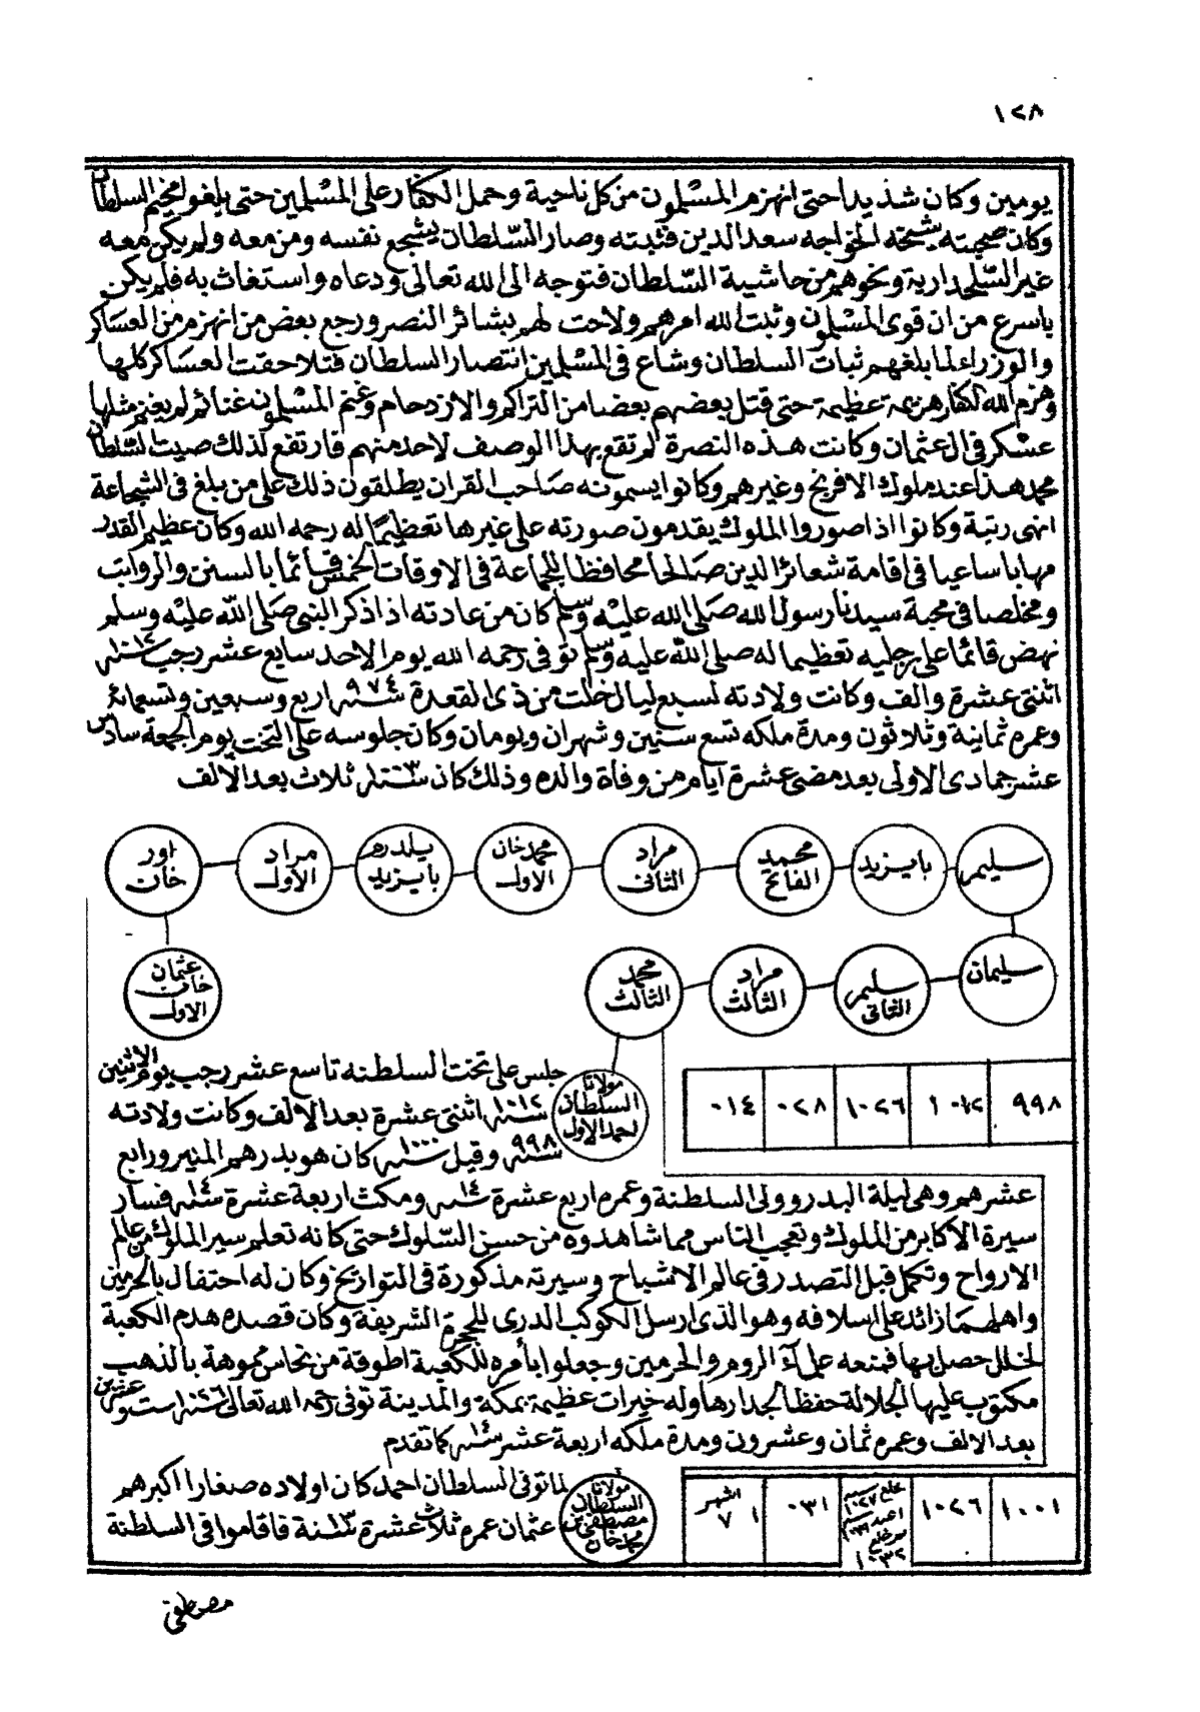 ١٢٨
يومين وكان شديدا حتى انهزم المسلمون من كل ناحية وحمل الكفار على المسلمين حتى بلغوا مخيم السلطان
وكان صحبته شيخه الخواجه سعد الدين فثبته وصار السلطان يشجع نفسه ومن معه ولم يكن معه
غير السلحدارية ونحوهم من حاشية السلطان فتوجه الى الله تعالى ودعاه واستغاث به فلم يكن
باسرع من ان قوى المسلمون وثبت الله امرهم ولاحت لهم بشائر النصر ورجع بعض من انهزم من العساكر
والوزراء لما بلغهم ثبات السلطان وشاع فى المسلمين انتصار السلطان فتلاحقت العساكر كلها
وهزم الله الكفار هزيمة عظيمة حتى قتل بعضهم بعضا من التراكم والازدحام وغنم المسلمون غنائم لم يغنم مثلها
عسكر فى ال عثمان وكانت هذه النصرة لم تقع بهذا الوصف لاحد منهم فارتفع لذلك صيت السلطان
محمد هذا عند ملوك الافرنج وغيرهم وكانوا يسمونه صاحب القران يطلقون ذلك على من بلغ فى الشجاعة
انهى رتبة وكانوا اذا صوروا الملوك يقدمون صورته على غيرها تعظيما له رحمه الله وكان عظيم القدر
مهابا ساعيا فى اقامة شعائر الدين صالحا محافظا للجماعة فى الاوقات الخمس قائما بالسنن والرواتب
ومخلصا فى محبة سيدنا رسول الله صلى الله عليه وسلم كان من عادته اذا ذكر النبى صلى الله عليه وسلم
نهض قائما على رجليه تعظيما له صلى الله عليه وسلم توفى رحمه الله يوم الاحد سابع عشر رجب سنة ١٠١٢
اثنتى عشرة والف وكانت ولادته لسبع ليال خلت من ذى القعدة سنة ٩٧٤ اربع وسبعين وتسعمائة
وعمره ثمانية وثلاثون ومدة ملكه تسع سنين وشهران ويومان وكان جلوسه على التخت يوم الجمعة سادس
عشر جمادى الاولى بعد مضى عشرة ايام من وفاة والده وذلك كان سنة ١٠٠٣ ثلاث بعد الالف
سليم
بايزيد
محمد الفاتح
مراد الثانى
محمد خان الاول
يلدرم بايزيد
مراد الاول
اور خان
سليمان
سليم الثانى
مراد الثالث
محمد الثالث
عثمان خان الاول
٩٩٨ ١٠١٢ ١٠٢٦ ٠٢٨ ٠١٤
مولانا السلطان احمد الاول
جلس على تخت السلطنه تاسع عشر رجب يوم الاثنين
سنة ١٠١٢ اثنتى عشرة بعد الالف وكانت ولادته
سنة ٩٩٨ وقيل سنة ١٠٠٠ كان هو بدرهم المنير ورابع
عشرهم وهى ليلة البدر وولى السلطنة وعمره اربع عشرة سنة ١٤ ومكث اربعة عشرة سنة ١٤ فسار
سيرة الاكابر من الملوك وتعجب الناس مما شاهدوه من حسن السلوك حتى كانه تعلم سير الملوك من عالم
الارواح وتكمل قبل التصدر فى عالم الاشباح وسيرته مذكورة فى التواريخ وكان له احتفال بالحرمين
واهلهما زائد على اسلافه وهو الذى ارسل الكوكب الدرى للحجرة الشريفة وكان قصده هدم الكعبة
لخلل حصل بها فمنعه علماء الروم والحرمين وجعلوا بأمره للكعبة اطوقة من نحاس مموهة بالذهب
مكتوب عليها الجلالة حفظا لجدارها وله خيرات عظيمة بمكة والمدينة توفى رحمه الله تعالى سنة ١٠٢٦ ست وعشرين
بعد الالف وعمره ثمان وعشرون ومدة ملكه اربعة عشر سنة ١٤ كما تقدم
١٠٠١ ١٠٢٦ خلع سنة ١٠٢٧ اعيد سنة ثم خلع ١٠٣٢ ٠٣١ ١ اشهر ٧
مولانا السلطان مصطفى بن محمد خان
لما توفى السلطان احمد كان اولاده صغارا اكبرهم
عثمان عمره ثلاث عشرة سنة ١٣ فاقاموا فى السلطنة
مصطفى